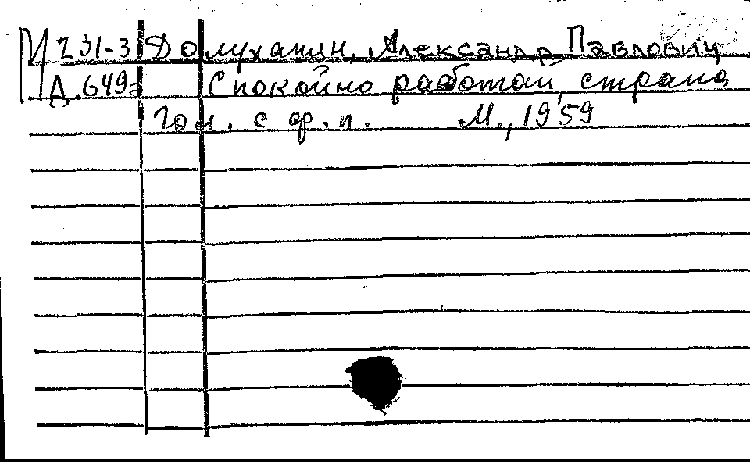 М 231-3 Долуханян, Александр Павлович
Д.649 Спокойно работай, страна
1 бм. с ф.п. М., 1959